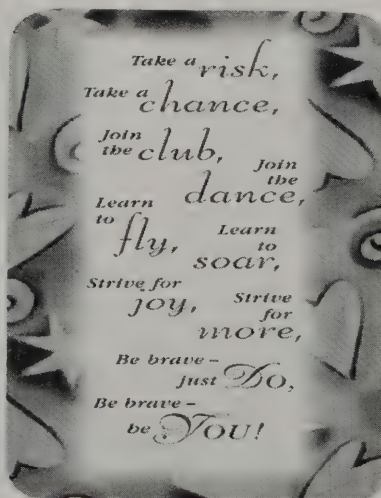 Take a risk,
Take a chance,
Join the club,
Join the dance,
Learn to fly,
Learn to soar,
Strive for joy,
Strive for more,
Be brave – just Do,
Be brave – be YOU!